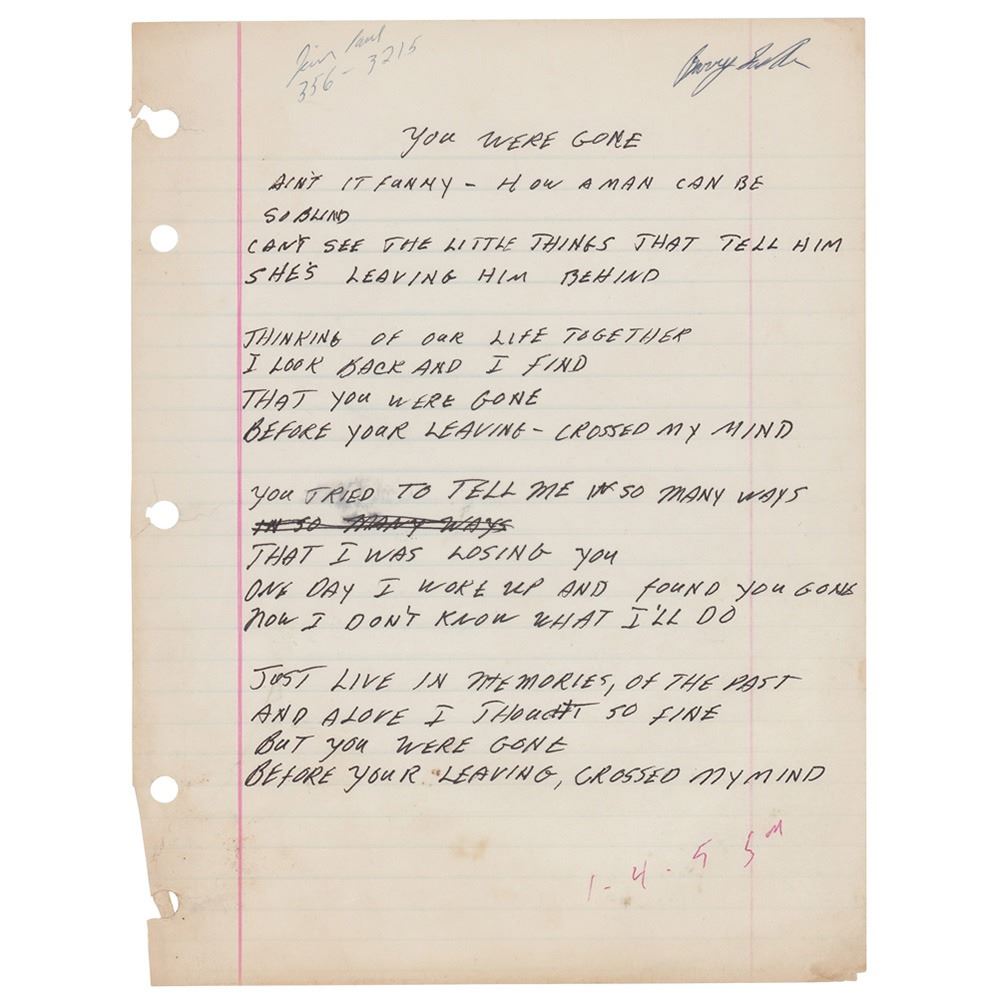 Jim Paul
356-3215
YOU WERE GONE
AIN'T IT FUNNY - HOW A MAN CAN BE
SO BLIND
CAN'T SEE THE LITTLE THINGS THAT TELL HIM
SHE'S LEAVING HIM BEHIND
THINKING OF OUR LIFE TOGETHER
I LOOK BACK AND I FIND
THAT YOU WERE GONE
BEFORE YOUR LEAVING - CROSSED MY MIND
YOU TRIED TO TELL ME IN SO MANY WAYS
IN SO MANY WAYS
THAT I WAS LOSING YOU
ONE DAY I WOKE UP AND FOUND YOU GONE
NOW I DON'T KNOW WHAT I'LL DO
JUST LIVE IN MEMORIES, OF THE PAST
AND A LOVE I THOUGHT SO FINE
BUT YOU WERE GONE
BEFORE YOUR LEAVING, CROSSED MY MIND
1-4-5 5m